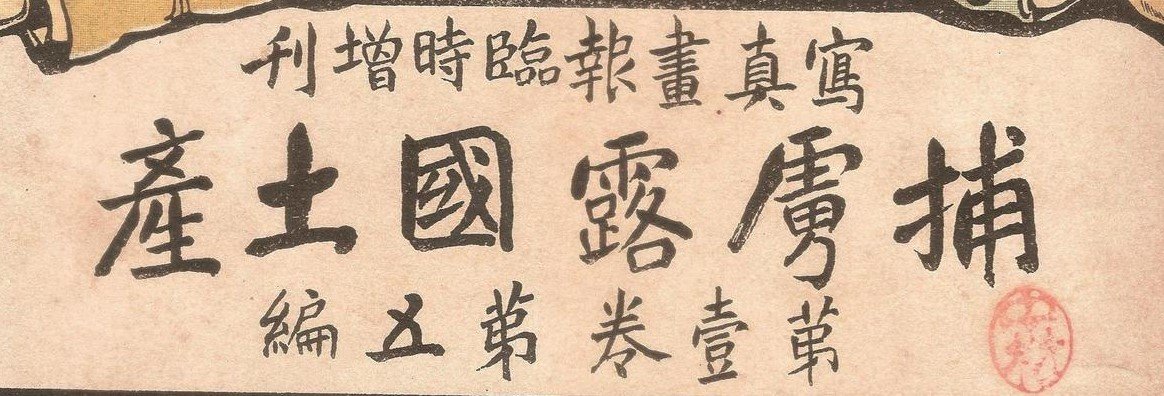 寫真畫報臨時增刊
捕虜露國土產
第壹卷第五編